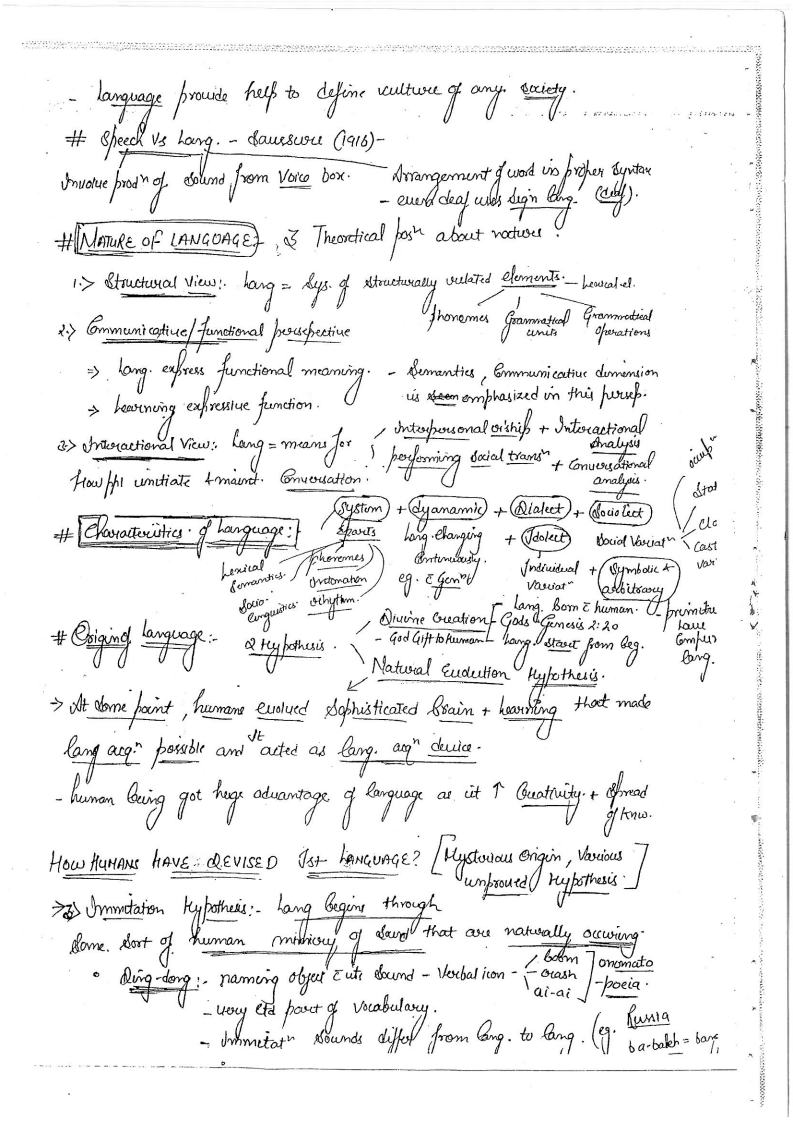 - Language provide help to define culture of any society.
# Speech Vs Lang. - Saussure (1916)-
Involve prodⁿ of sound from Voice box.
Arrangement of word in proper syntax
- even deaf uses Sign lang. (deaf).
# NATURE OF LANGUAGE :- 3 Theoretical posⁿ about nature.
1.> Structural View:. Lang = Sys. of structurally related elements. - Lexical el.
Phonemes Grammatical units Grammatical operations
2.> Communicative/functional perspective
=> Lang. express functional meaning. - Semantics, Communicative dimension
=> Learning expressive function. is emphasized in this persep.
3.> Interactional View:. Lang = means for
Interpersonal r/ship + Interactional Analysis
performing social transⁿ + Conversational analysis.
How ppl initiate + maint. Conversation.
# Characteristics of Language:
System + dynamic + Dialect + Sociolect
5 parts Lang. changing continuously. + Idolect Social Variatⁿ
Lexical Semantics. Phonemes
Socio-linguistics Intonation rhythm.
Individual Variatⁿ + Symbolic & arbitrary
# Origin of Language:-
2 Hypothesis.
Divine Creation - Lang. Born c̄ human.
- God Gift to human Gods - Genesis 2:20
Lang. start from beg.
Natural Evolution Hypothesis.
-> At some point, humans evolved Sophisticated brain + learning that made
lang acqⁿ possible and It acted as lang. acqⁿ device.
- human being got huge advantage of language as it ↑ Creativity + Spread
of Know.
HOW HUMANS HAVE DEVISED Ist LANGUAGE? [Mysterious Origin, Various
unproved Hypothesis.]
Immitation Hypothesis:- Lang Begins through
Some sort of human mimicry of sound that are naturally occuring.
° Ding-dong:- naming object c̄ its sound - Verbal icon - boom
crash
ai-ai
onomato
-poeia.
- very ltd part of vocabulary.
- Immitatⁿ sounds differ from lang. to lang. (eg. Russia